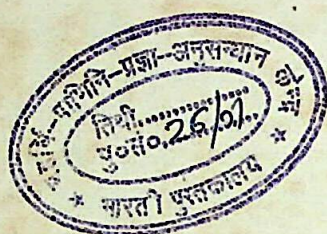 महर्षि-पाणिनि-प्रज्ञा--अनुसन्धान
तिथी..............
पु०सं०.26/01..
भारती पुस्तकालय